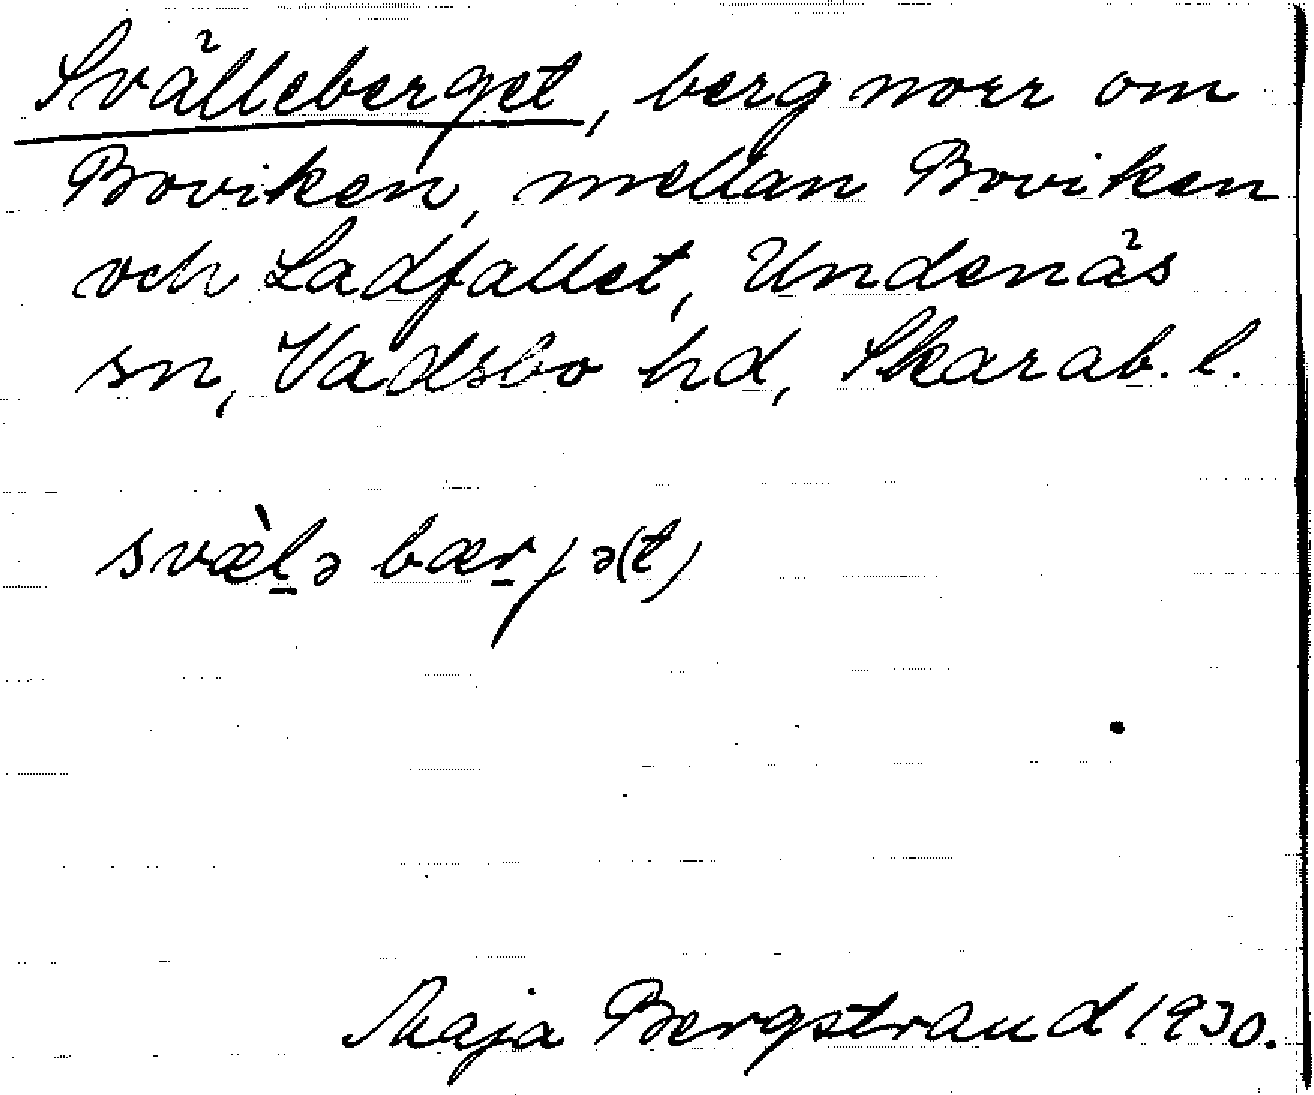 Svälleberget, berg norr om
Boviken, mellan Boviken
och Ladfallet, Undenäs
sn, Vadsbo hd, Skarab. l.
svæ̀l̠ə bær̠jə(t)
Maja Bergstrand 1930.